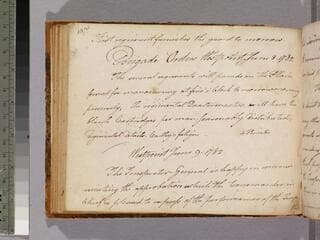 First regiment furnishes the guard to morrow
Brigade Orders Westpoint, June 8. 1782
The several regiments will parade on the Plain
for manoeuvering at five o'clock to morrow morning
precisely, the regimental Quartermasters will have
blank Cartridges per man seasonably distributed
Regimental details
Westpoint June 9. 1782
The Inspector General is happy in
the approbation which the Commander in
Chief is pleased to express of the performances of the